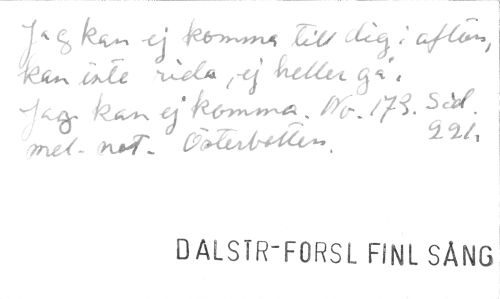 Jag kan ej komma till dig i afton,
kan inte rida, ej heller gå.
Jag kan ej komma. No. 173. Sid.
mel. not. Österbotten. 221.
DALSTR-FORSL FINL SÅNG